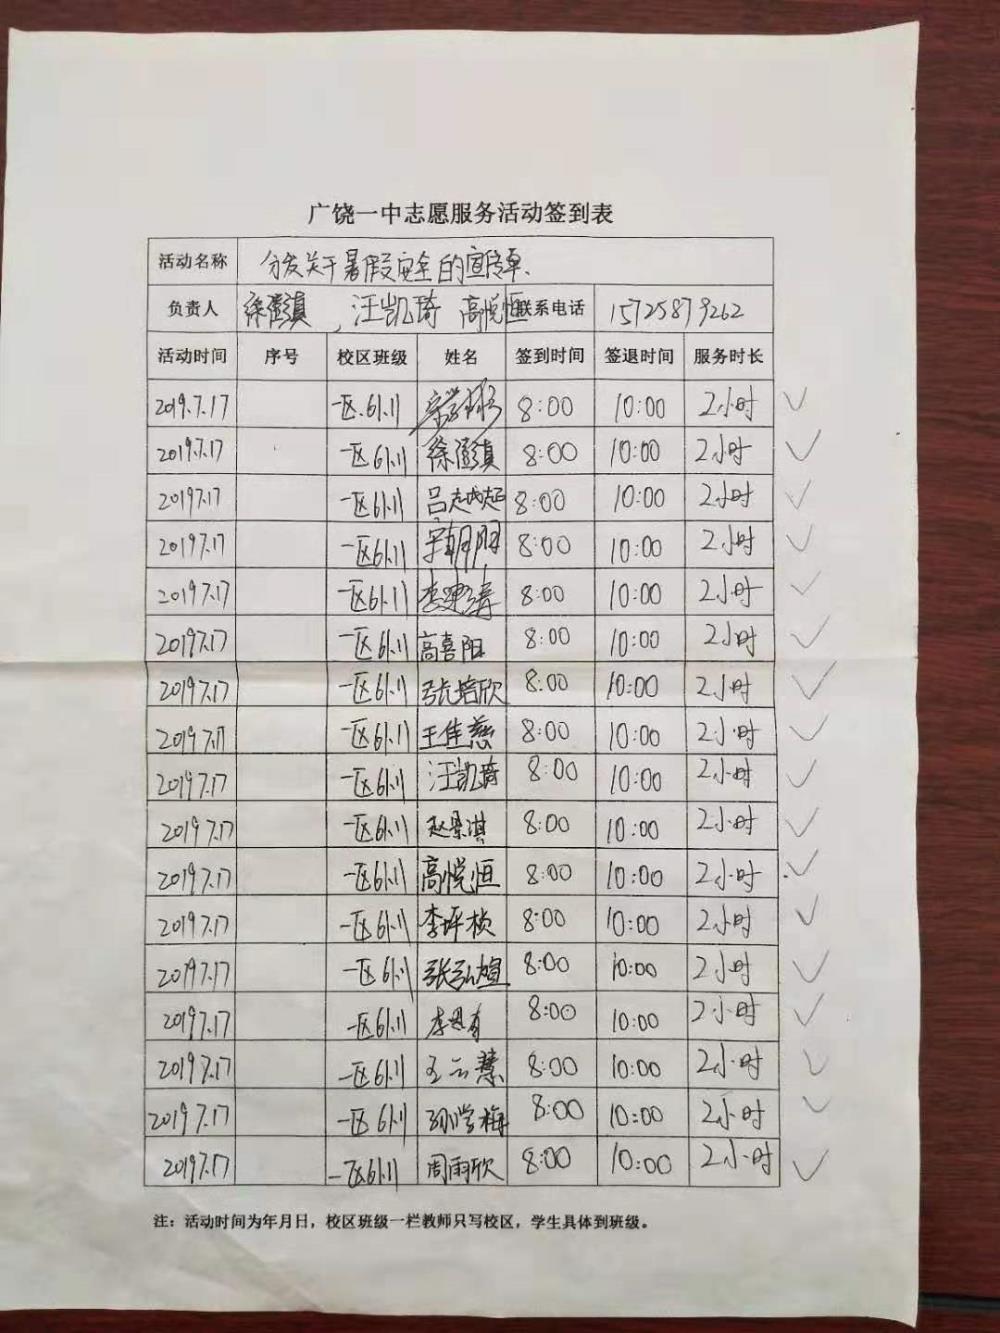 广饶一中志愿服务活动签到表
活动名称 分发关于暑假安全的宣传单.
负责人 徐滢滇, 汪凯琦 高悦恒 联系电话 15725879262
活动时间 序号 校区班级 姓名 签到时间 签退时间 服务时长
2019.7.17 一区.61.11 8:00 10:00 2小时 ✓
2019.7.17 一区61.11 徐滢滇 8:00 10:00 2小时 ✓
20197.17 一区61.11 吕志成起 8:00 10:00 2小时 ✓
20197.17 一区61.11 朝阳 8:00 10:00 2小时 ✓
20197.17 一区61.11 李建涛 8:00 10:00 2小时 ✓
20197.17 一区61.11 高喜阳 8:00 10:00 2小时 ✓
20197.17 一区61.11 张培欣 8:00 10:00 2小时 ✓
20197.17 一区61.11 王佳慈 8:00 10:00 2小时 ✓
20197.17 一区61.11 汪凯琦 8:00 10:00 2小时 ✓
20197.17 一区61.11 赵梁淇 8:00 10:00 2小时 ✓
20197.17 一区61.11 高悦恒 8:00 10:00 2小时 ✓
20197.17 一区61.11 李坪桢 8:00 10:00 2小时 ✓
20197.17 一区61.11 张弘煊 8:00 10:00 2小时 ✓
20197.17 一区61.11 李 8:00 10:00 2小时 ✓
20197.17 一区61.11 王云慧 8:00 10:00 2小时 ✓
20197.17 一区61.11 孙学梅 8:00 10:00 2小时 ✓
20197.17 一区61.11 周雨欣 8:00 10:00 2小时 ✓
注：活动时间为年月日，校区班级一栏教师只写校区，学生具体到班级。